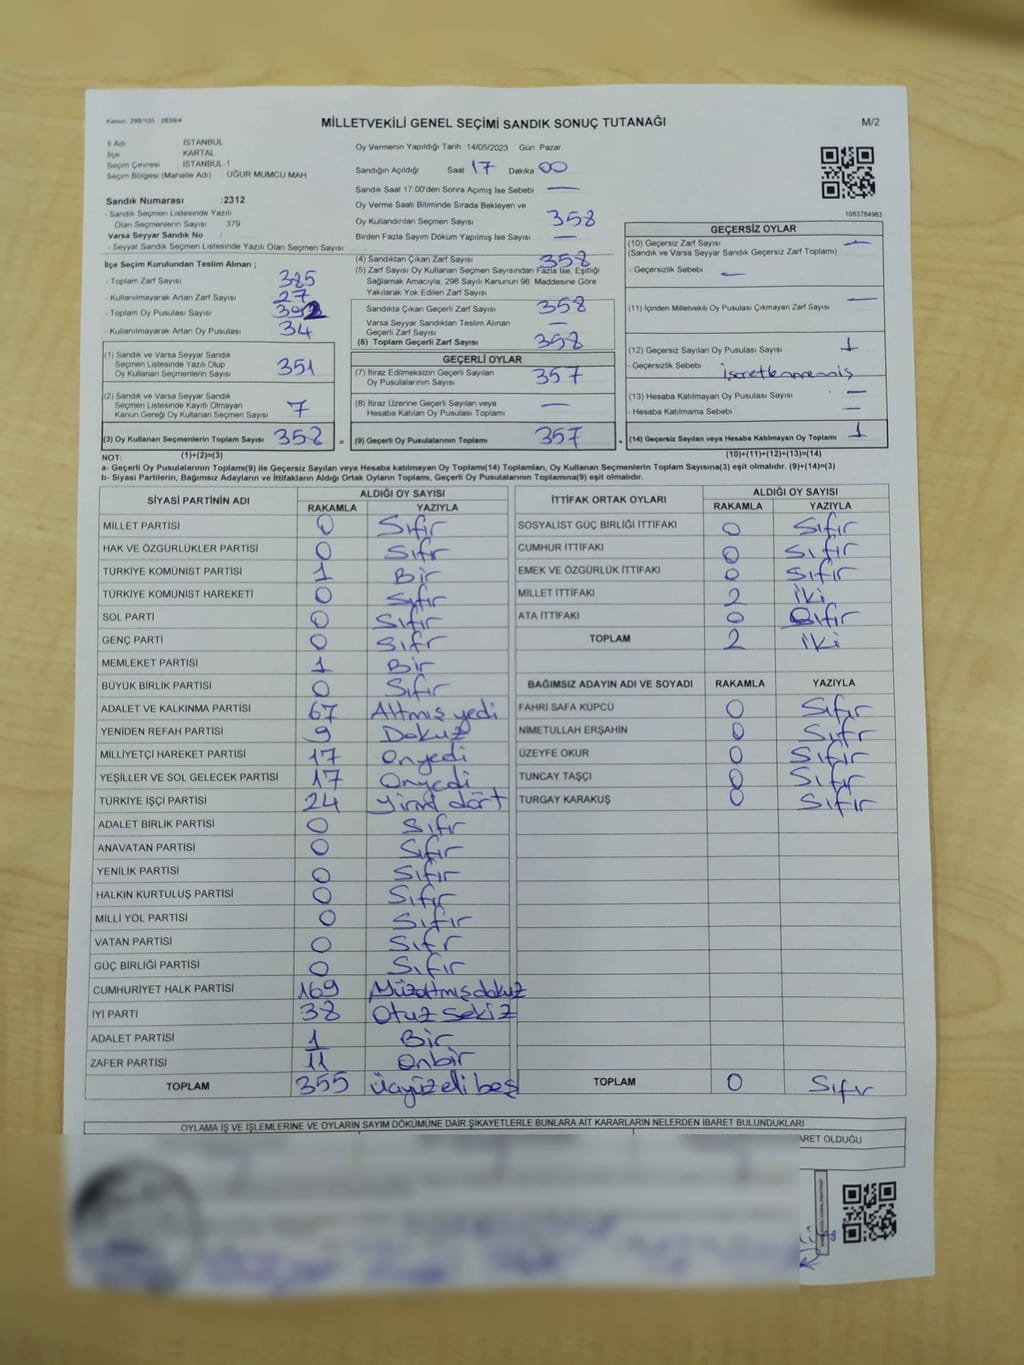 Kanun: 298/105 - 2839/4
MİLLETVEKİLİ GENEL SEÇİMİ SANDIK SONUÇ TUTANAĞI
M/2
İl Adı İSTANBUL
İlçe KARTAL
Seçim Çevresi İSTANBUL-1
Seçim Bölgesi (Mahalle Adı) UĞUR MUMCU MAH
Sandık Numarası :2312
- Sandık Seçmen Listesinde Yazılı
Olan Seçmenlerin Sayısı 379
Varsa Seyyar Sandık No :
- Seyyar Sandık Seçmen Listesinde Yazılı Olan Seçmen Sayısı
Oy Vermenin Yapıldığı Tarih 14/05/2023 Gün: Pazar
Sandığın Açıldığı Saat 17 Dakika 00
Sandık Saat 17:00'den Sonra Açımış İse Sebebi —
Oy Verme Saati Bitiminde Sırada Bekleyen ve
Oy Kullandırılan Seçmen Sayısı 358
Birden Fazla Sayım Döküm Yapılmış İse Sayısı —
1083784963
İlçe Seçim Kurulundan Teslim Alınan ;
- Toplam Zarf Sayısı 385
- Kullanılmayarak Artan Zarf Sayısı 27
- Toplam Oy Pusulası Sayısı 392
- Kullanılmayarak Artan Oy Pusulası 34
(1) Sandık ve Varsa Seyyar Sandık
Seçmen Listesinde Yazılı Olup
Oy Kullanan Seçmenlerin Sayısı 351
(2) Sandık ve Varsa Seyyar Sandık
Seçmen Listesinde Kayıtlı Olmayan
Kanun Gereği Oy Kullanan Seçmen Sayısı 7
(3) Oy Kullanan Seçmenlerin Toplam Sayısı 358 =
(1)+(2)=(3)
(4) Sandıktan Çıkan Zarf Sayısı 358
(5) Zarf Sayısı Oy Kullanan Seçmen Sayısından Fazla İse, Eşitliği
Sağlamak Amacıyla, 298 Sayılı Kanunun 98. Maddesine Göre
Yakılarak Yok Edilen Zarf Sayısı
Sandıkta Çıkan Geçerli Zarf Sayısı 358
Varsa Seyyar Sandıktan Teslim Alınan
Geçerli Zarf Sayısı —
(6) Toplam Geçerli Zarf Sayısı 358
GEÇERLİ OYLAR
(7) İtiraz Edilmeksizin Geçerli Sayılan
Oy Pusulalarının Sayısı 357
(8) İtiraz Üzerine Geçerli Sayılan veya
Hesaba Katılan Oy Pusulası Toplamı —
(9) Geçerli Oy Pusulalarının Toplamı 357 +
GEÇERSİZ OYLAR
(10) Geçersiz Zarf Sayısı —
(Sandık ve Varsa Seyyar Sandık Geçersiz Zarf Toplamı)
- Geçersizlik Sebebi —
(11) İçinden Milletvekili Oy Pusulası Çıkmayan Zarf Sayısı —
(12) Geçersiz Sayılan Oy Pusulası Sayısı 1
- Geçersizlik Sebebi işaretlenmemiş
(13) Hesaba Katılmayan Oy Pusulası Sayısı —
- Hesaba Katılmama Sebebi —
(14) Geçersiz Sayılan veya Hesaba Katılmayan Oy Toplamı 1
(10)+(11)+(12)+(13)=(14)
NOT:
a- Geçerli Oy Pusulalarının Toplamı(9) ile Geçersiz Sayılan veya Hesaba katılmayan Oy Toplamı(14) Toplamları, Oy Kullanan Seçmenlerin Toplam Sayısına(3) eşit olmalıdır. (9)+(14)=(3)
b- Siyasi Partilerin, Bağımsız Adayların ve İttifakların Aldığı Ortak Oyların Toplamı, Geçerli Oy Pusulalarının Toplamına(9) eşit olmalıdır.
SİYASİ PARTİNİN ADI ALDIĞI OY SAYISI
RAKAMLA YAZIYLA
MİLLET PARTİSİ 0 Sıfır
HAK VE ÖZGÜRLÜKLER PARTİSİ 0 Sıfır
TÜRKİYE KOMÜNİST PARTİSİ 1 Bir
TÜRKİYE KOMÜNİST HAREKETİ 0 Sıfır
SOL PARTİ 0 Sıfır
GENÇ PARTİ 0 Sıfır
MEMLEKET PARTİSİ 1 Bir
BÜYÜK BİRLİK PARTİSİ 0 Sıfır
ADALET VE KALKINMA PARTİSİ 67 Altmış yedi
YENİDEN REFAH PARTİSİ 9 Dokuz
MİLLİYETÇİ HAREKET PARTİSİ 17 Onyedi
YEŞİLLER VE SOL GELECEK PARTİSİ 17 Onyedi
TÜRKİYE İŞÇİ PARTİSİ 24 yirmi dört
ADALET BİRLİK PARTİSİ 0 Sıfır
ANAVATAN PARTİSİ 0 Sıfır
YENİLİK PARTİSİ 0 Sıfır
HALKIN KURTULUŞ PARTİSİ 0 Sıfır
MİLLİ YOL PARTİSİ 0 Sıfır
VATAN PARTİSİ 0 Sıfır
GÜÇ BİRLİĞİ PARTİSİ 0 Sıfır
CUMHURİYET HALK PARTİSİ 169 Yüzaltmışdokuz
İYİ PARTİ 38 Otuz sekiz
ADALET PARTİSİ 1 Bir
ZAFER PARTİSİ 11 Onbir
TOPLAM 355 Üçyüzelli beş
İTTİFAK ORTAK OYLARI ALDIĞI OY SAYISI
RAKAMLA YAZIYLA
SOSYALİST GÜÇ BİRLİĞİ İTTİFAKI 0 Sıfır
CUMHUR İTTİFAKI 0 Sıfır
EMEK VE ÖZGÜRLÜK İTTİFAKI 0 Sıfır
MİLLET İTTİFAKI 2 iki
ATA İTTİFAKI 0 Sıfır
TOPLAM 2 iki
BAĞIMSIZ ADAYIN ADI VE SOYADI RAKAMLA YAZIYLA
FAHRİ SAFA KÜPCÜ 0 Sıfır
NİMETULLAH ERŞAHİN 0 Sıfır
ÜZEYFE OKUR 0 Sıfır
TUNCAY TAŞÇI 0 Sıfır
TURGAY KARAKUŞ 0 Sıfır
TOPLAM 0 Sıfır
OYLAMA İŞ VE İŞLEMLERİNE VE OYLARIN SAYIM DÖKÜMÜNE DAİR ŞİKAYETLERLE BUNLARA AİT KARARLARIN NELERDEN İBARET BULUNDUKLARI
ARET OLDUĞU